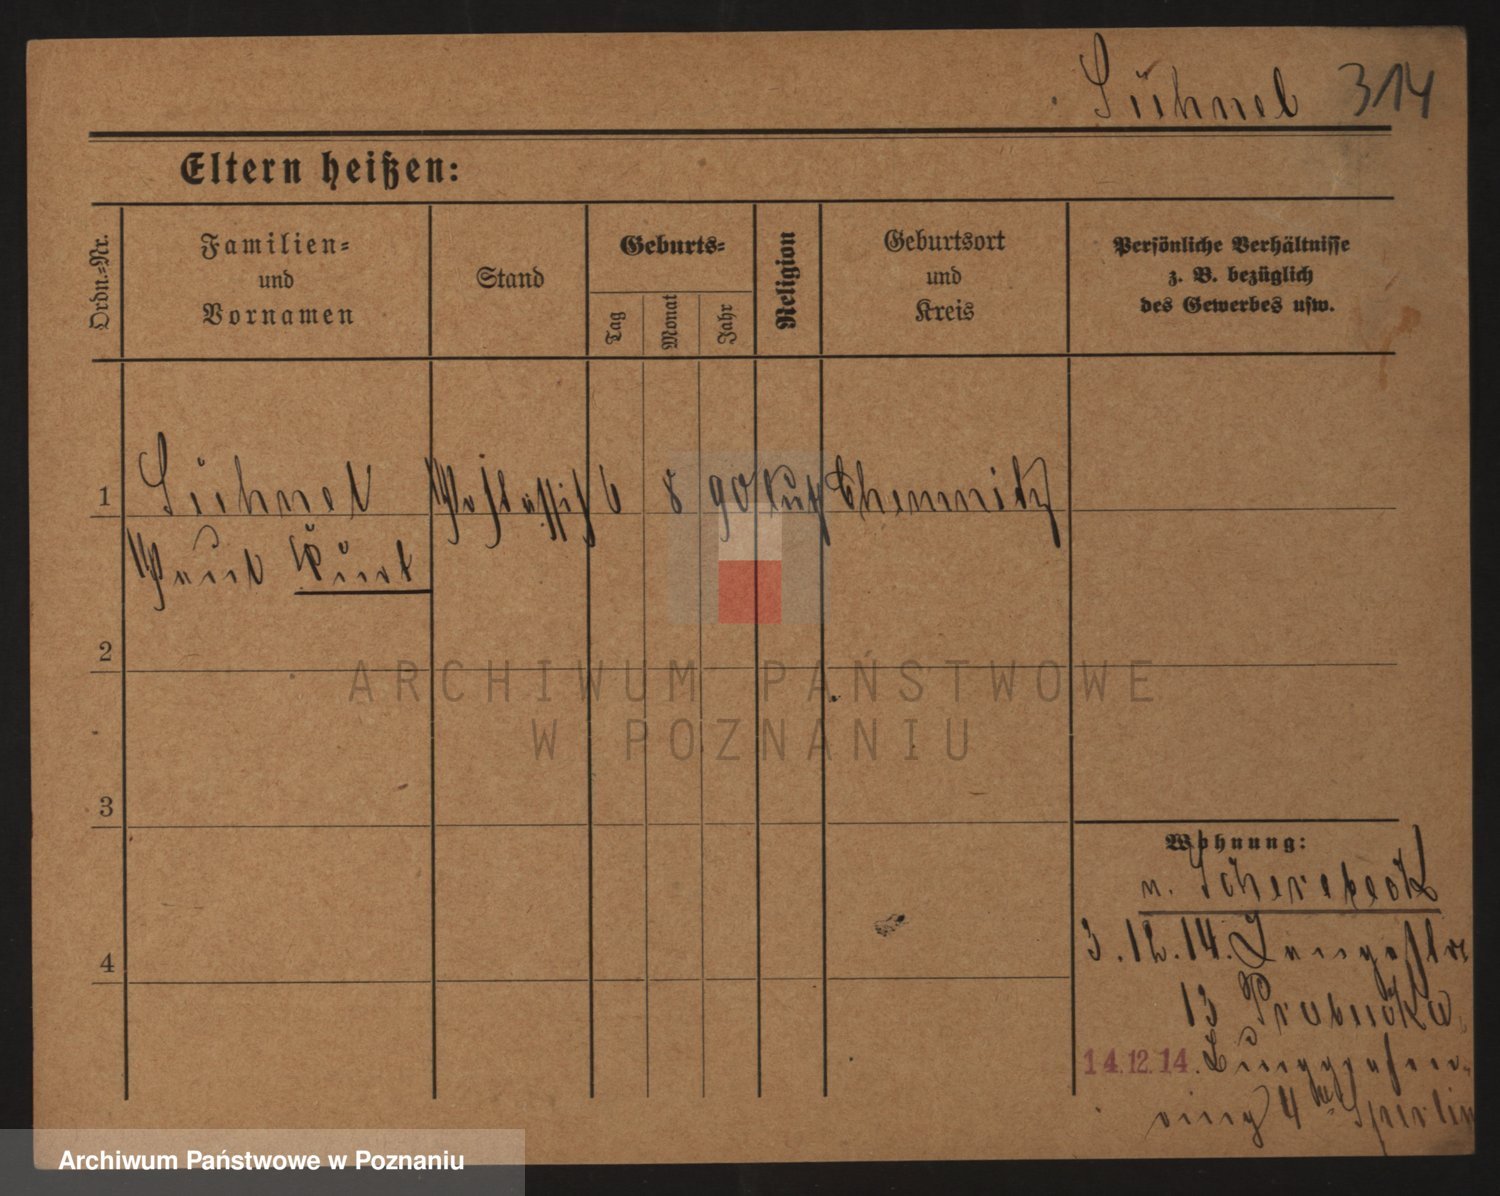 Sühnel 314
Eltern heißen:
Ordn.-Nr.
Familien-
und
Vornamen
Stand
Geburts-
Tag
Monat
Jahr
Religion
Geburtsort
und
Kreis
Persönliche Verhältnisse
z. B. bezüglich
des Gewerbes usw.
1 Sühnel 6 8 90 luth Chemnitz
Paul Kurt
2
3
4
Wohnung:
n.
3.12.14. Langestr
13
14.12.14.
ring 4
ARCHIWUM PAŃSTWOWE
W POZNANIU
Archiwum Państwowe w Poznaniu